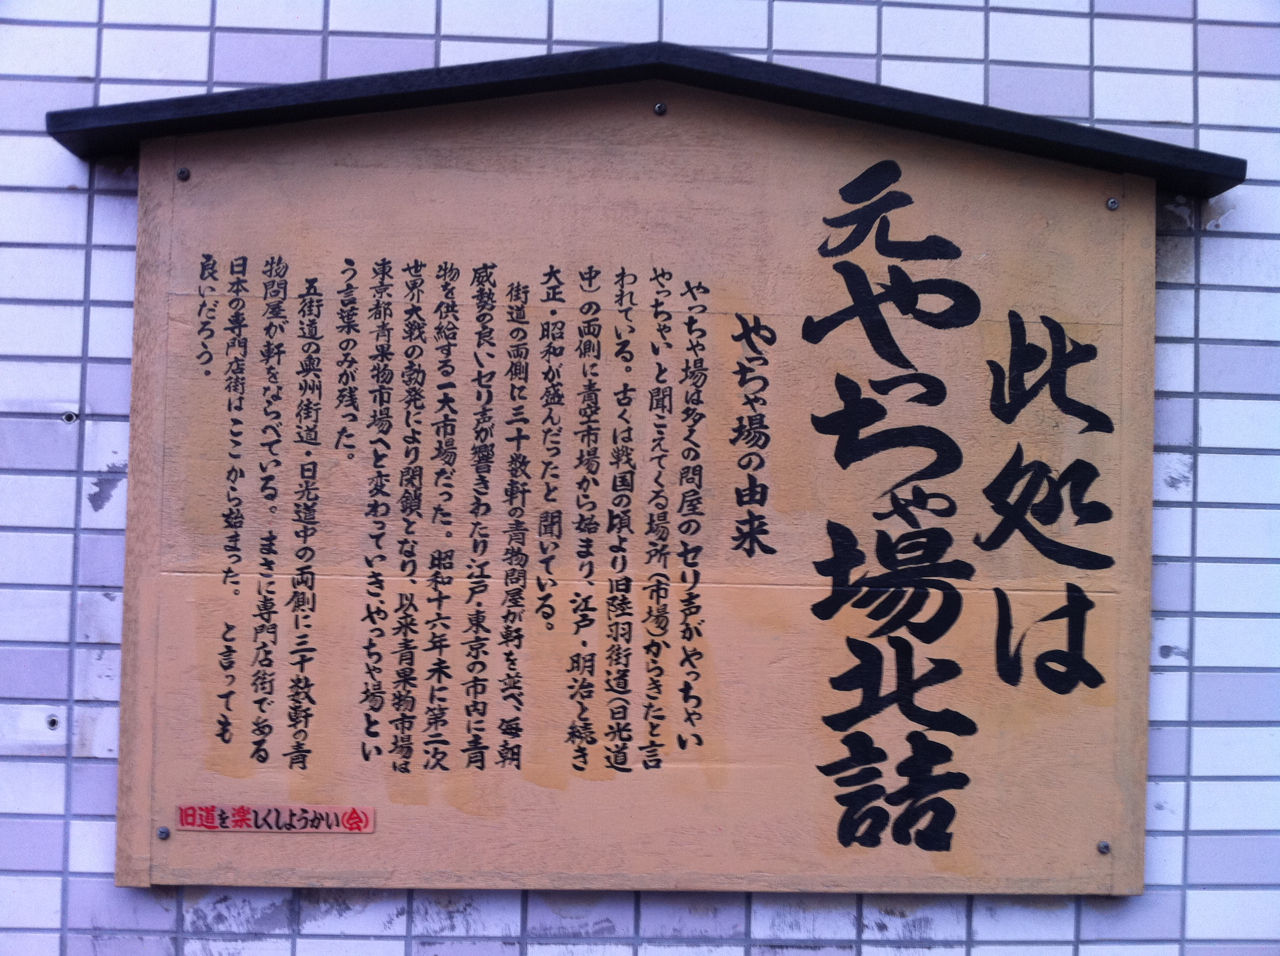 此処は
元やっちゃ場北詰
やっちゃ場の由来
やっちゃ場は多くの問屋のセリ声がやっちゃい
やっちゃいと聞こえてくる場所(市場)からきたと言
われている。古くは戦国の頃より旧陸羽街道(日光道
中)の両側に青空市場から始まり、江戸・明治と続き
大正・昭和が盛んだったと聞いている。
街道の両側に三十数軒の青物問屋が軒を並べ、毎朝
威勢の良いセリ声が響きわたり江戸・東京の市内に青
物を供給する一大市場だった。昭和十六年末に第二次
世界大戦の勃発により閉鎖となり、以来青果物市場は
東京都青果物市場へと変わっていき、やっちゃ場とい
う言葉のみが残った。
五街道の奥州街道・日光道中の両側に三十数軒の青
物問屋が軒をならべている。まさに専門店街である
日本の専門店街はここから始まった。と言っても
良いだろう。
旧道を楽しくしようかい(会)